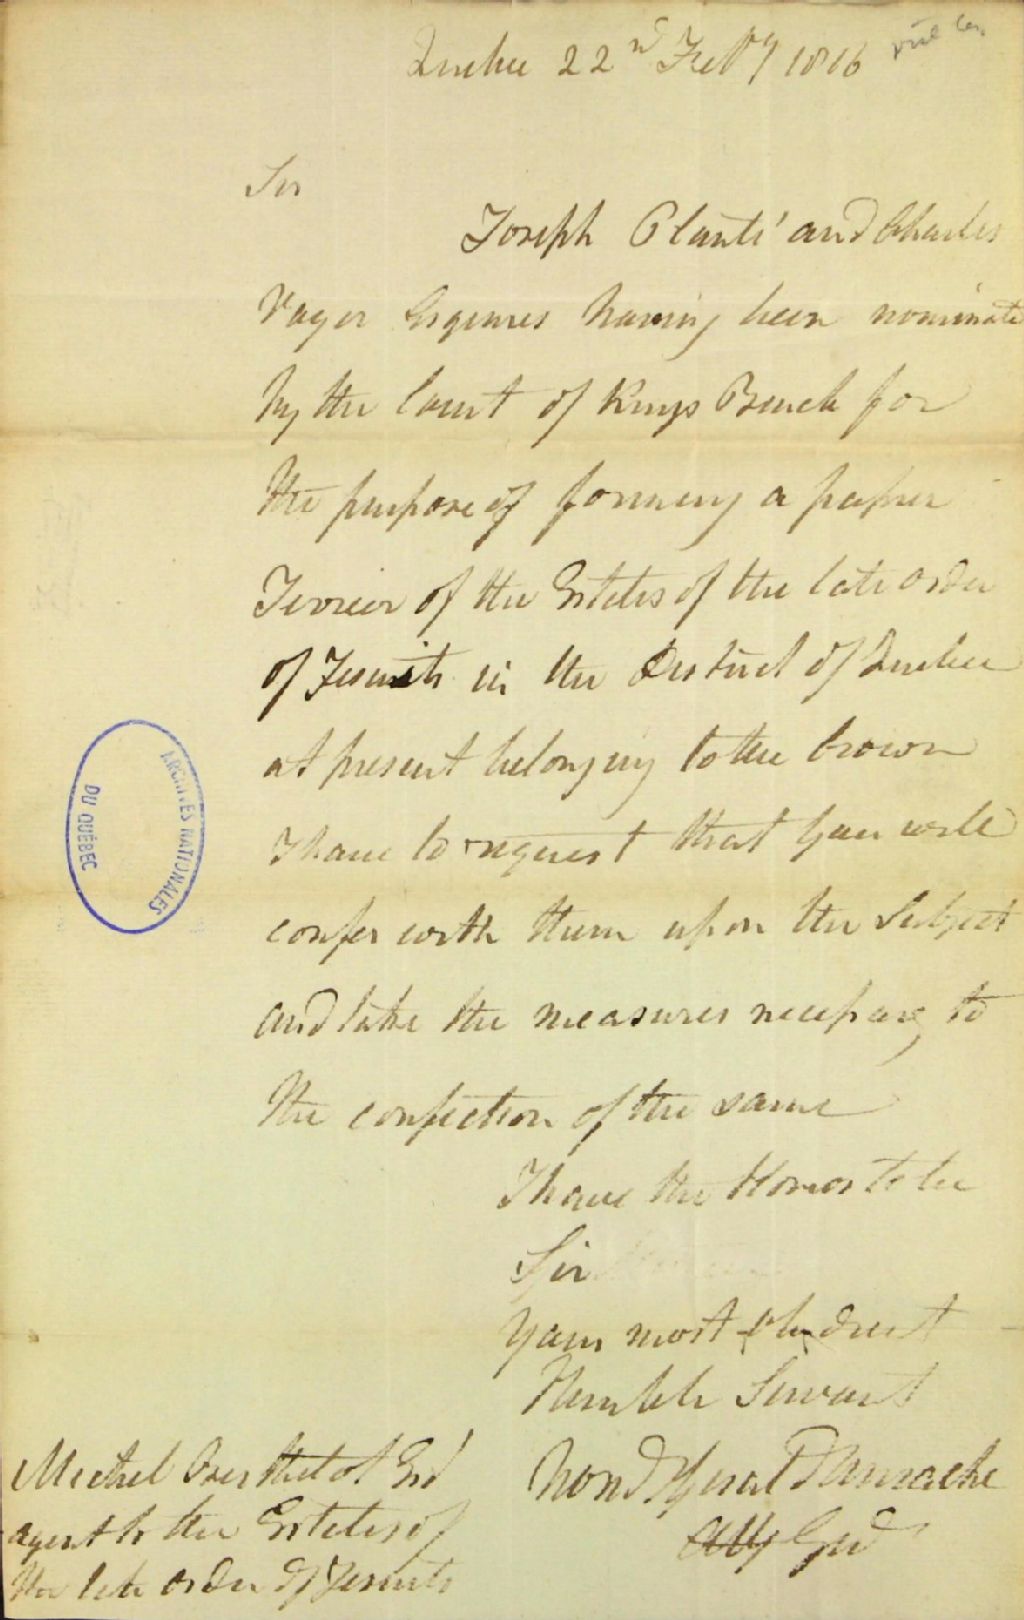 Quebec 22nd Feby 1816
Sir
Joseph Planté and Charles
Voyer Esquires having been nominate
by the Court of Kings Bench for
the purpose of forming a papier
Terrier of the Estates of the late order
of Jesuits in the District of Quebec
at present belonging to the Crown
I have to request that you will
confer with them upon the Subject
and take the measures necessary to
the confection of the same
I have the Honor to be
Sir
Your most obedient
Humble Servant
Michel Berthelot Esr
agent to the Estates of
the late order of Jesuits
Atty Genl
ARCHIVES NATIONALES
DU QUÉBEC